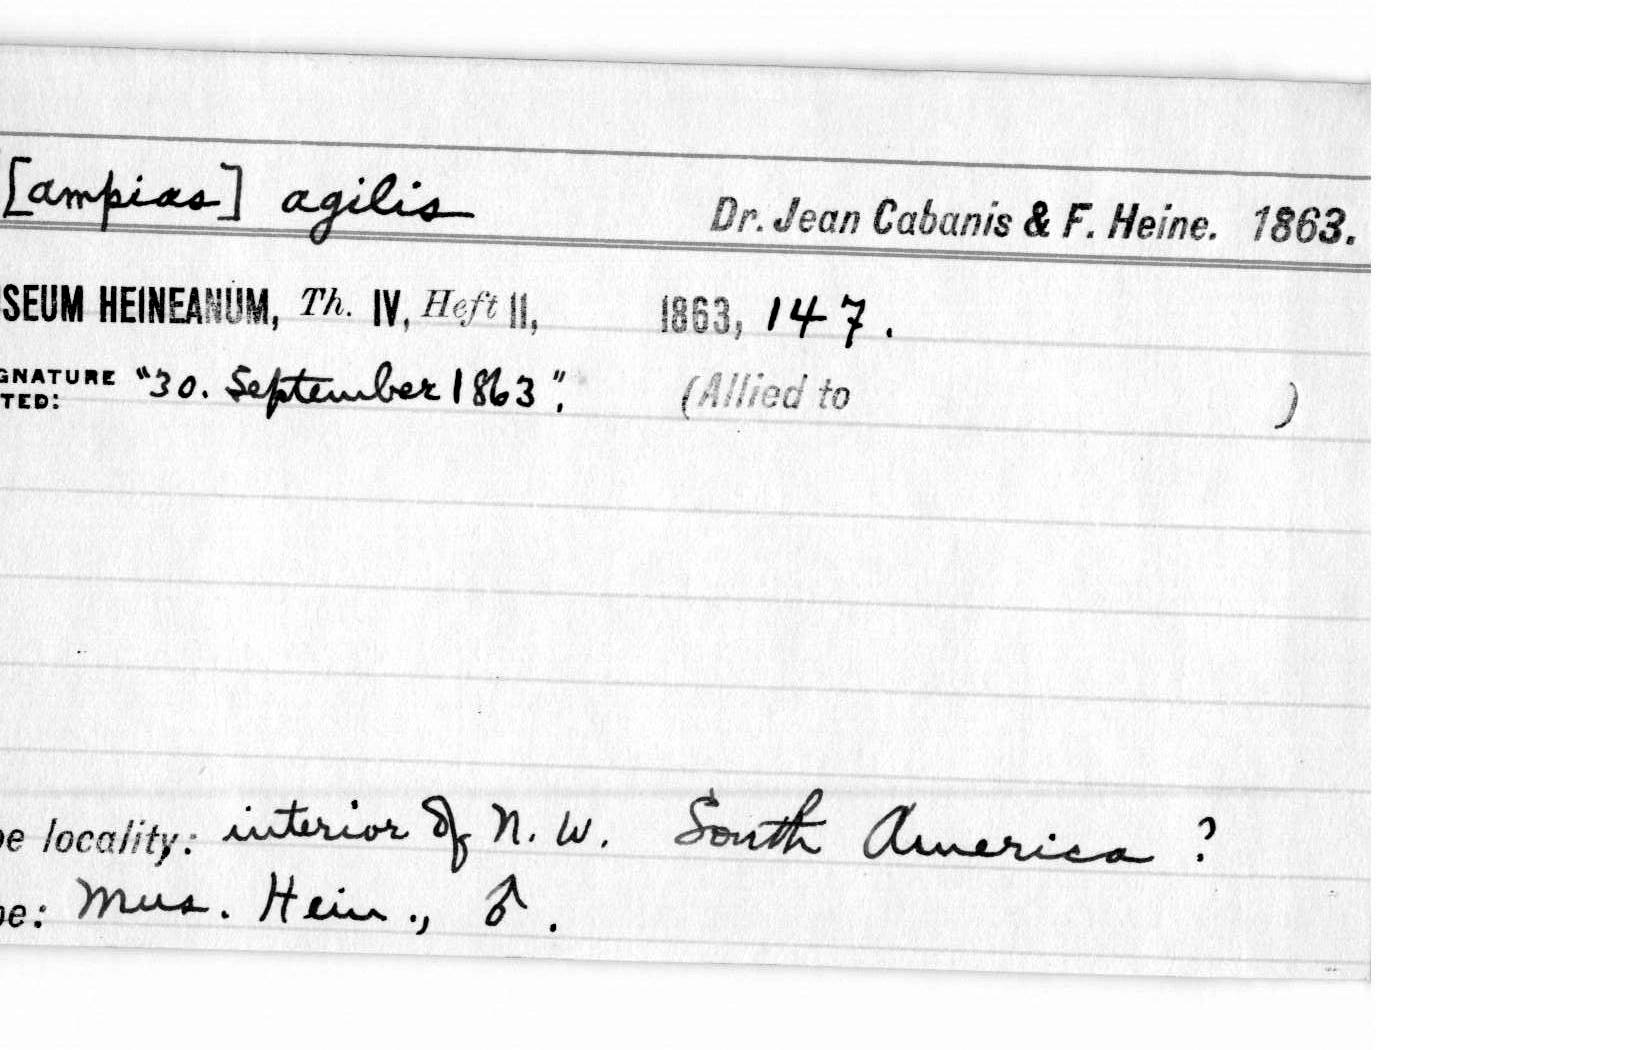 [ampias] agilis Dr. Jean Cabanis & F. Heine. 1863.
SEUM HEINEANUM, Th. IV, Heft II, 1863, 147.
GNATURE "30. September 1863". (Allied to )
TED:
pe locality: interior of N. W. South America ?
pe: Mus. Hein., ♂.